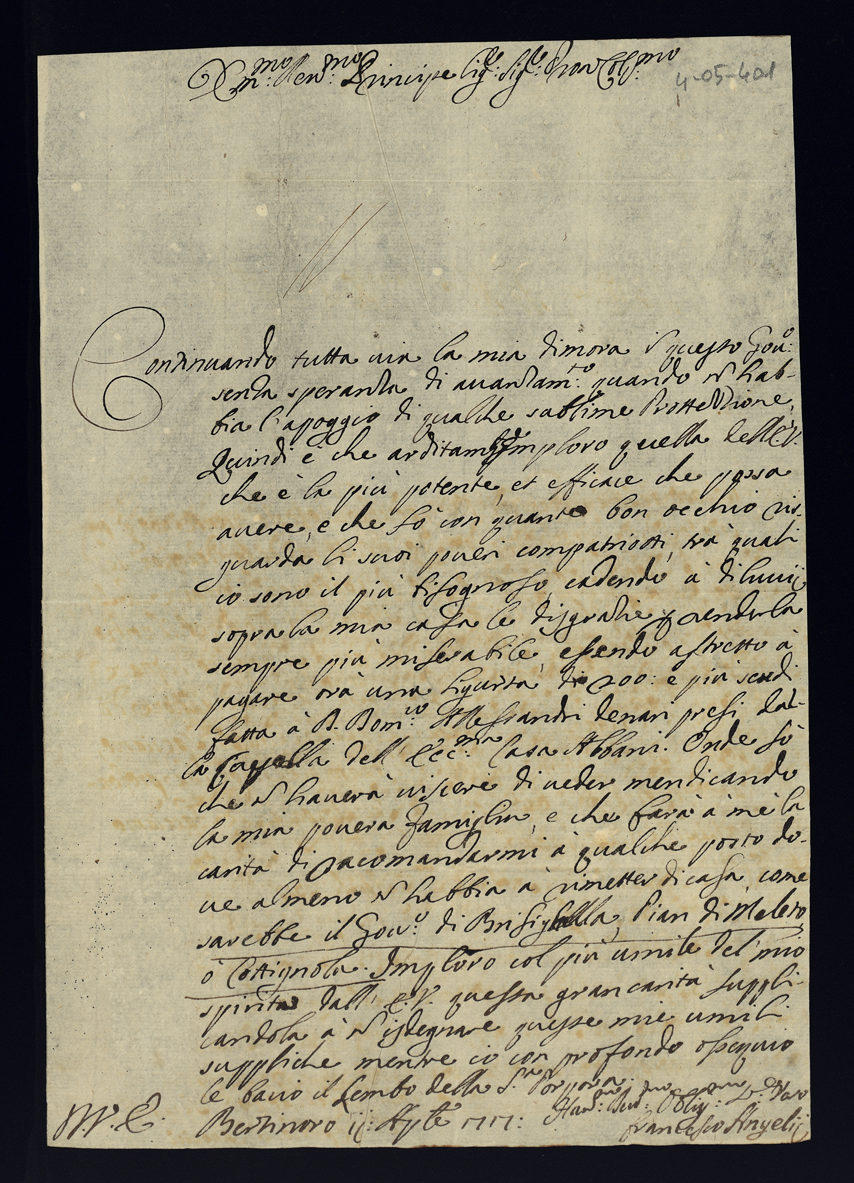 Em:mo Rev:mo Principe Sig:re Sig:re Pron Col:mo
4-05-401
Continuando tutta uia la mia dimora in questo Gou:o
senza speranza di auanzam:to quando non hab-
bia l'apoggio di qualche sublime Prottezzione,
Quindi è che arditam:te Imploro quella dell'E.V.
che è la più potente, et efficace che possa
auere, e che sò con quanto bon occhio ris-
guarda li suoi poueri compatriotti, trà quali
io sono il più bisognoso, cadendo à diluuij
sopra la mia casa le disgrazie, renderla
sempre più miserabile, essendo astretto à
pagare orà una sigurtà di 200: e più scudi
fatta à B. Dom:co Alessandri denari presi dal-
la Cappella dell'Ecc:ma Casa Albani. Onde sò
che non hauerà uiscere di ueder mendicando
la mia pouera famiglia, e che farà à mè la
carità di racomandarmi à qualche posto do-
ue almeno non habbia à rimetter di casa, come
sarebbe il Gou:o di Brisighella, Pian di Meleto
ò Cottignola. Imploro col più umile del mio
spirito dall'E.V. questa gran carità suppli-
candola à non isdegnare queste mie umili
suppliche mentre io con profondo ossequio
le bacio il Lembo della S:ra Porpora.
Bertinoro 11: Ap:le 1717:
Hum:mo Ser:re Oblig:mo
Francesco Angelij